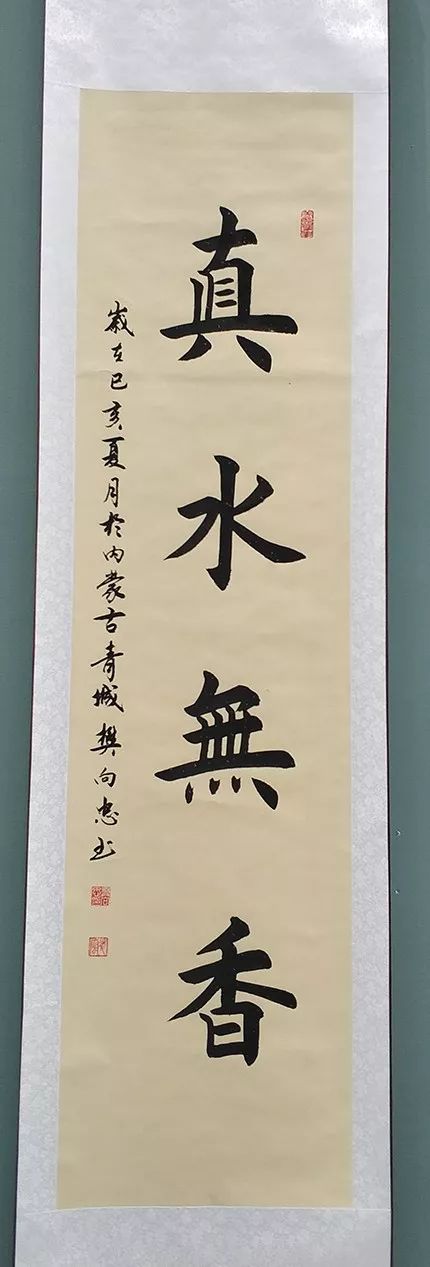 真水無香
歲在己亥夏月於内蒙古青城樊向忠书